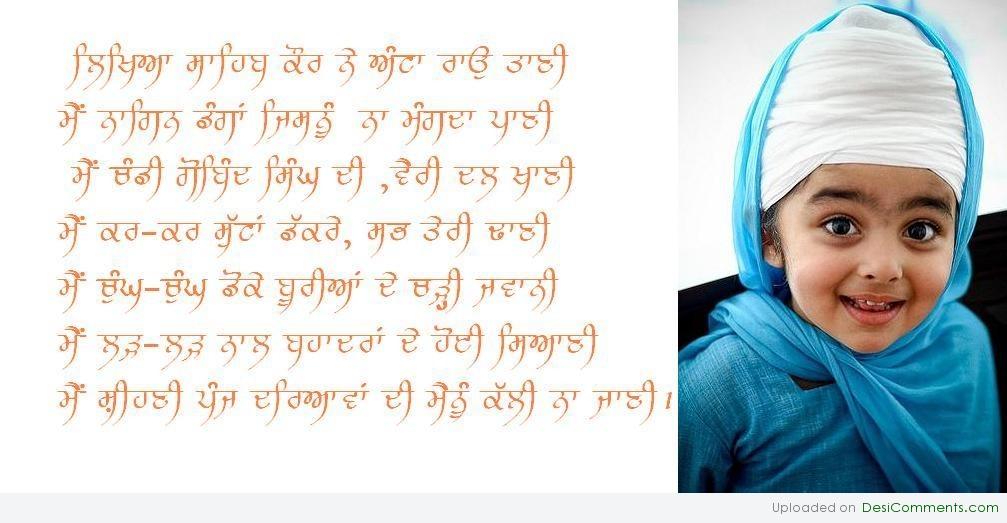 ਲਿਖਿਆ ਸਾਹਿਬ ਕੌਰ ਨੇ ਅੰਟਾ ਰਾਉ ਤਾਣੀ
ਮੈਂ ਨਾਗਿਨ ਡੰਗਾਂ ਜਿਸਨੂੰ ਨਾ ਮੰਗਦਾ ਪਾਣੀ
ਮੈਂ ਚੰਡੀ ਗੋਬਿੰਦ ਸਿੰਘ ਦੀ ,ਵੈਰੀ ਦਲ ਖਾਣੀ
ਮੈਂ ਕਰ-ਕਰ ਸੁੱਟਾਂ ਡੱਕਰੇ, ਸਭ ਤੇਰੀ ਢਾਣੀ
ਮੈਂ ਚੁੰਘ-ਚੁੰਘ ਡੋਕੇ ਬੂਰੀਆਂ ਦੇ ਚੜ੍ਹੀ ਜਵਾਨੀ
ਮੈਂ ਲੜ-ਲੜ ਨਾਲ ਬਹਾਦਰਾਂ ਦੇ ਹੋਈ ਸਿਆਣੀ
ਮੈਂ ਸ਼ੀਹਣੀ ਪੰਜ ਦਰਿਆਵਾਂ ਦੀ ਮੈਨੂੰ ਕੱਲੀ ਨਾ ਜਾਣੀ।
Uploaded on DesiComments.com